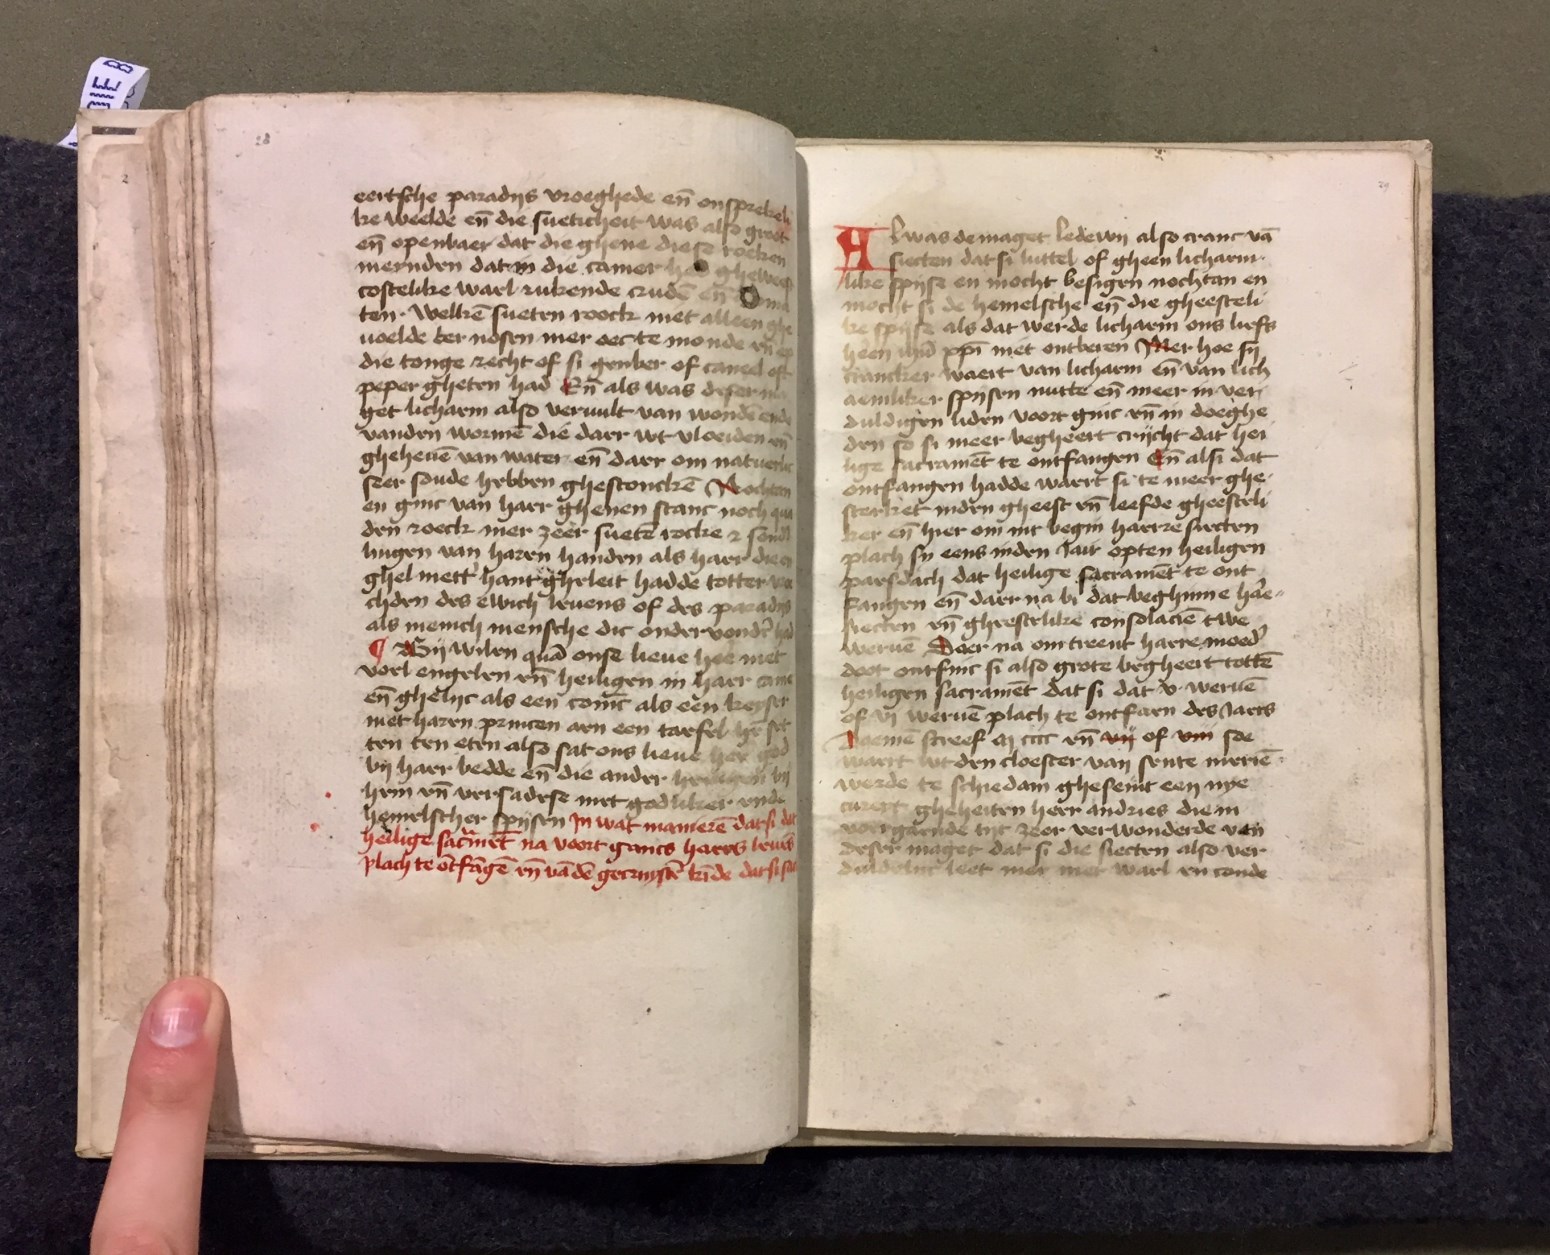 28
eertsche paradijs vroeghede en̄ onsprekeli
ke weelde en̄ die sueticheit was also groot
en̄ openbaer dat die ghene diese roeken
meynden dat in die camer
costelike wael rukende crudē en̄
ten. Welkē sueten roock niet alleen ghe
voelde der nosen mer oec te monde en̄ op
die tonge recht of si genber of caneel of
peper gheten had En̄ als was deser ma
get licham also vervult van wondē ende
vanden wormē die daer wt vloeiden en̄
ghehevē van water en̄ daer om natuerlic
seer soude hebben ghestonckē Nochtan
en ginc van haer ghenen stanc noch qua
den roeck mer zeer suetē rocke
lingen van haren handen als haer die en
ghel mett' hant gheleit hadde totter
chden des ewich levens of des paradijs
als menich mensche dic ondervondē had
¶ Bij wilen quā onse lieve hee met
voel engelen en̄ heiligen in haer came
en̄ ghelijc als een comc̄ als een keyser
met haren princen aen een taefel
ten ten eten also sat ons lieve heer god
bij haer bedde en̄ die ander heiligen bij
hem en̄ versadese met godliker ende
hemelscher spijsen In wat manierē dat si dat
heilige sacramēt na voort gancs haers levēs
plach te ōtfāgē en̄ vādē gecruystē kīde dat si sac
29
Al was de maget ledewij also cranc vā
siecten dat si luttel of gheen licham
like spijse en mocht besigen nochtan en
mocht si de hemelsche en̄ die gheesteli
ke spijse als dat werde licham ons liefs
heen ihū xp̄i niet ontberen Mer hoe sij
crancker waert van licham en̄ van lich
ameliker spijsen nutte en̄ meer in ver
duldigen liden voort ginc en̄ in doeghe
den so si meer begheert crijcht dat hei
lige sacramēt te ontfangen En̄ alsi dat
ontfangen hadde waert si te meer ghe
sterket inden gheest en̄ leefde gheesteli
ker en̄ hier om int begin haerre siecten
plach sy eens inden Jair opten heiligen
paesdach dat heilige sacramēt te ont
fangen en̄ daer na bi dat beghinne haer
siecten en̄ gheestelike consolaciē twe
wervē Daer na omtreent harre moed'
doot ontfinc si also grote begheert tottē
heiligen sacramēt dat si dat v. wervē
of vi wervē plach te ontfaen des Jaers
Doemē screef m cccc en̄ vij of viii soe
waert wt den cloester van sente merie
werde te schiedam gheseint een nye
cureit gheheiten heer andries die in
voergaende tijt zeer verwonderde van
deser maget dat si die siecten also ver
duldelic leet mer niet wael en conde